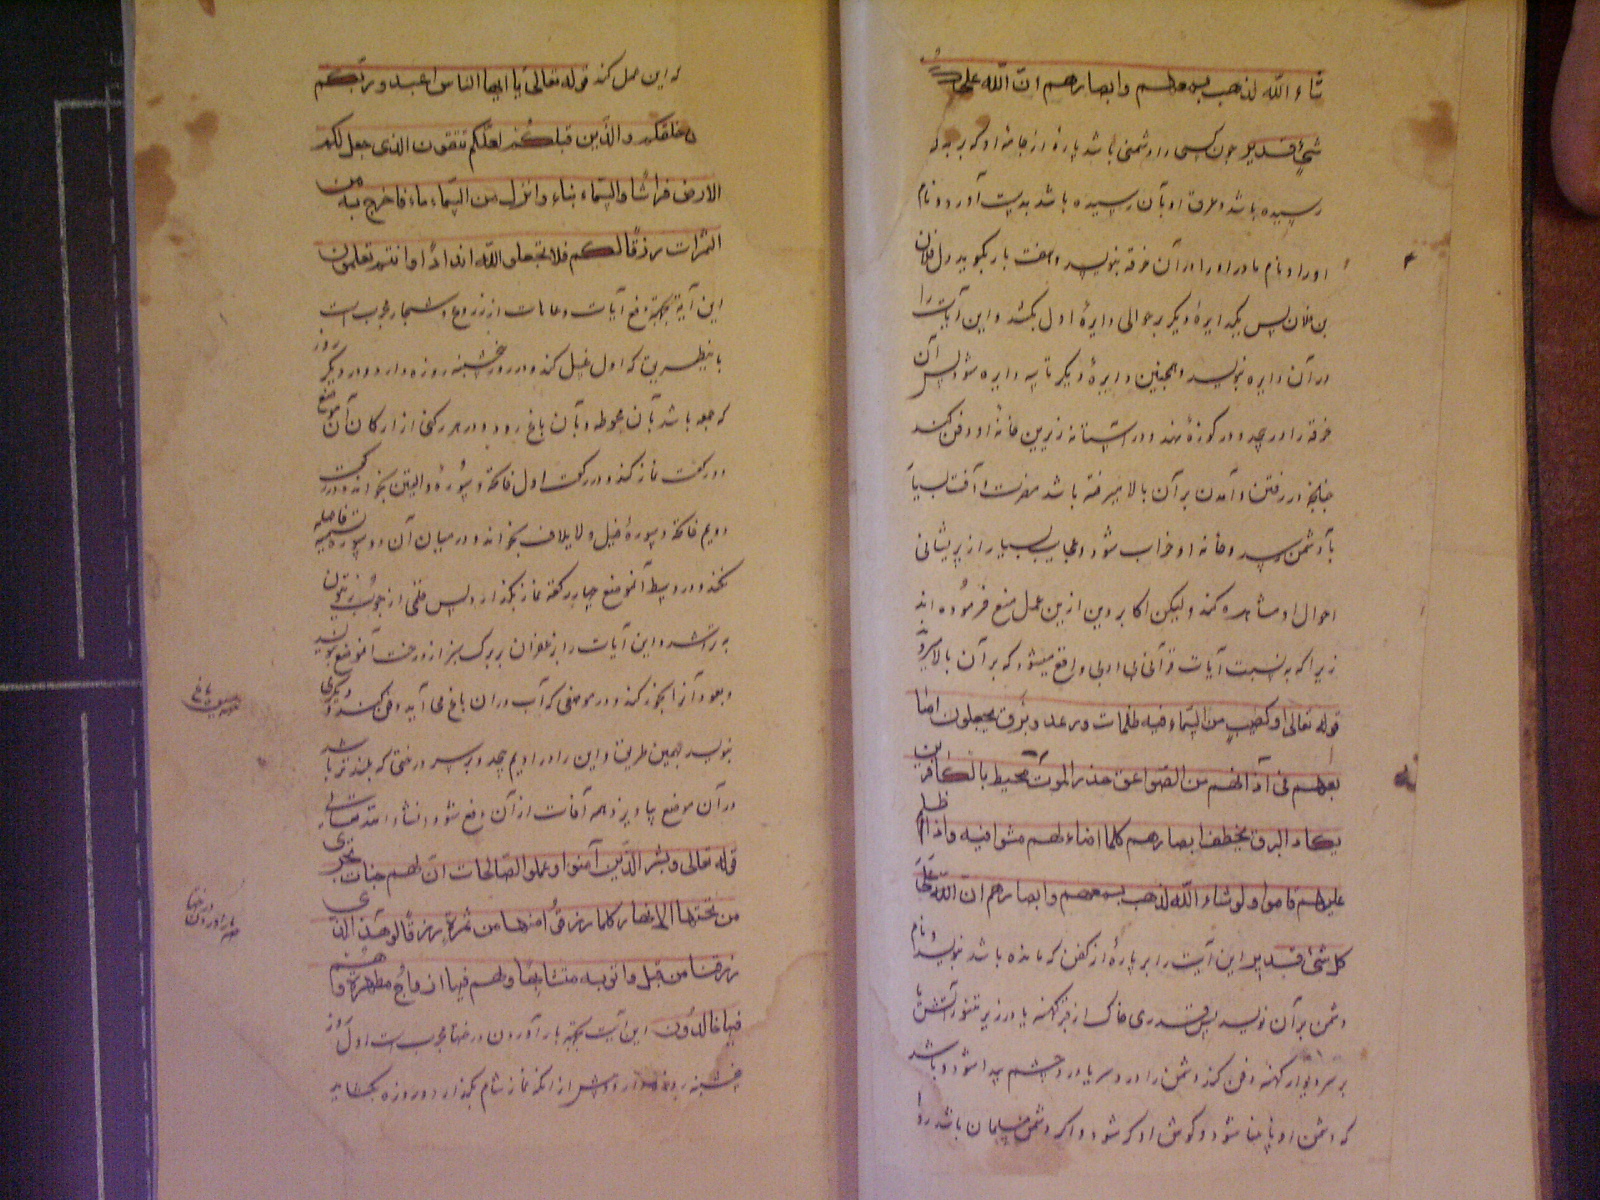 شاء الله لذهب بسمعهم وابصارهم ان الله علی کل
شئ قدیر چون کسی را دشمنی باشد پارهٔ از جامهٔ او که بر بدن
رسیده باشد و عرق او بآن رسیده باشد بدست آورد و نام
او را و نام مادر او را در آن خرقه بنویسد و هفت بار بگوید دل فلان
بن فلان پس یک دایرهٔ دیگر بر حوالی دایرهٔ اول بکشد و این آیات را
در آن دایره بنویسد و همچنین دایرهٔ دیگر تا سه دایره شود پس آن
خرقه را در کوزهٔ نهد و در آستانهٔ زیرین خانهٔ او دفن کند
چنانچه در رفتن و آمدن بر آن بالا میرفته باشد مضرت و آفت بسیار
بآن دشمن رسد و خانهٔ او خراب شود و عجایب بسیار از پریشانی
احوال او مشاهده کند ولیکن اکابر دین ازین عمل منع فرموده اند
زیرا که به نسبت آیات قرآنی بی ادبی واقع میشود که بر آن بالا میرود
قوله تعالی او کصیب من السماء فیه ظلمات ورعد وبرق یجعلون اصا
بعهم فی آذانهم من الصواعق حذر الموت محیط بالکافرین
یکاد البرق یخطف ابصارهم کلما اضاء لهم مشوا فیه واذا اظلم
علیهم قاموا ولو شاء الله لذهب بسمعهم وابصارهم ان الله علی
کل شئ قدیر این آیت را بر پارهٔ از کفن که مانده باشد بنویسد و نام
دشمن بر آن نویسد پس قدری خاک از قبر کهنه یا در زیر تنور آتش یا
بر سر دیوار کهنه دفن کند دشمن را درد سر یا درد چشم پیدا شود و باشد
که دشمن او نابینا شود و گوش او کر شود و اگر دشمن مسلمان باشد روا
که این عمل کند قوله تعالی یا ایها الناس اعبدوا ربکم
خلقکم والذین قبلکم لعلکم تتقون الذی جعل لکم
الارض فراشا والسماء بناء وانزل من السماء ماء فاخرج به من
الثمرات رزقا لکم فلا تجعلوا لله اندادا وانتم تعلمون
این آیة بجهة دفع آیات و عاهات از زروع و اشجار مجرب است
باینطریق که اول غسل کند و در روز پنجشنبه روزه دارد و در روز دیگر
که جمعه باشد بآن محوطه و بآن باغ رود و در هر رکنی از ارکان آن موضع
دو رکعت نماز کند و در رکعت اول فاتحه و سورهٔ والتین بخواند و در رکعت
دویم فاتحه و سورهٔ فیل و لایلاف بخواند و در میان آن دو سوره فاصله
نکند و در وسط آنموضع چهار رکعت نماز بگذارد پس قلمی از چوب زیتون
بتراشد و این آیات را بزعفران بر برگ سبز از درخت آنموضع بنویسد
و بعود آنرا بخور کند و در موضعی که آب در آن باغ می آید دفن کند و دیگری
بنویسد بهمین طریق و این را در ادیم پیچد و بر سر درختی که بلندتر باشد
در آن موضع بیاویزد همه آفات از آن دفع شود انشاء الله تعالی
قوله تعالی وبشر الذین آمنوا وعملوا الصالحات ان لهم جنات تجری
من تحتها الانهار کلما رزقوا منها من ثمرة رزقا قالوا هذا الذی
رزقنا من قبل واتوا به متشابها ولهم فیها ازواج مطهرة وهم
فیها خالدون این آیت بجهة بار آوردن درختها مجرب است اول روز
پنجشنبه روزه دارد پس از آنکه نماز شام بگذارد روزه بگشاید